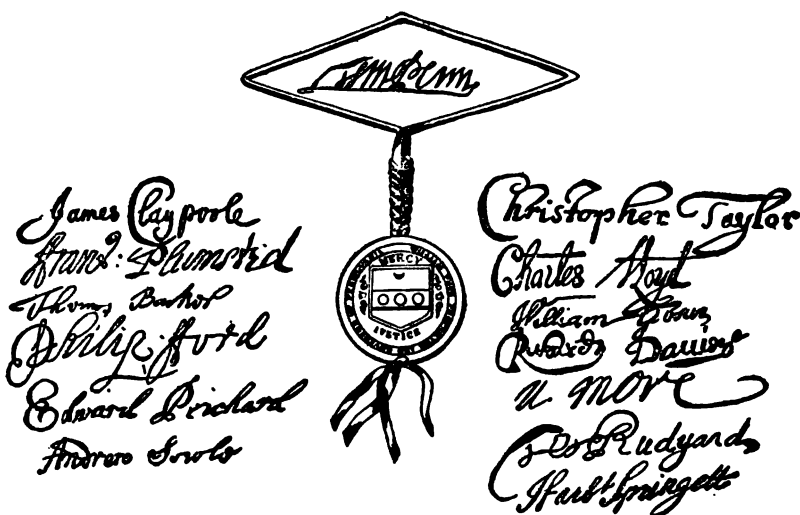 Wm Penn
James Claypoole
Fran̄: Plumsted
Thomas Barker
Philip Ford
Edward Prichard
Andrew Sowle
MERCY
IVSTICE
Christopher Taylor
Charles Lloyd
William
N More
Rudyard
Harbt Springett